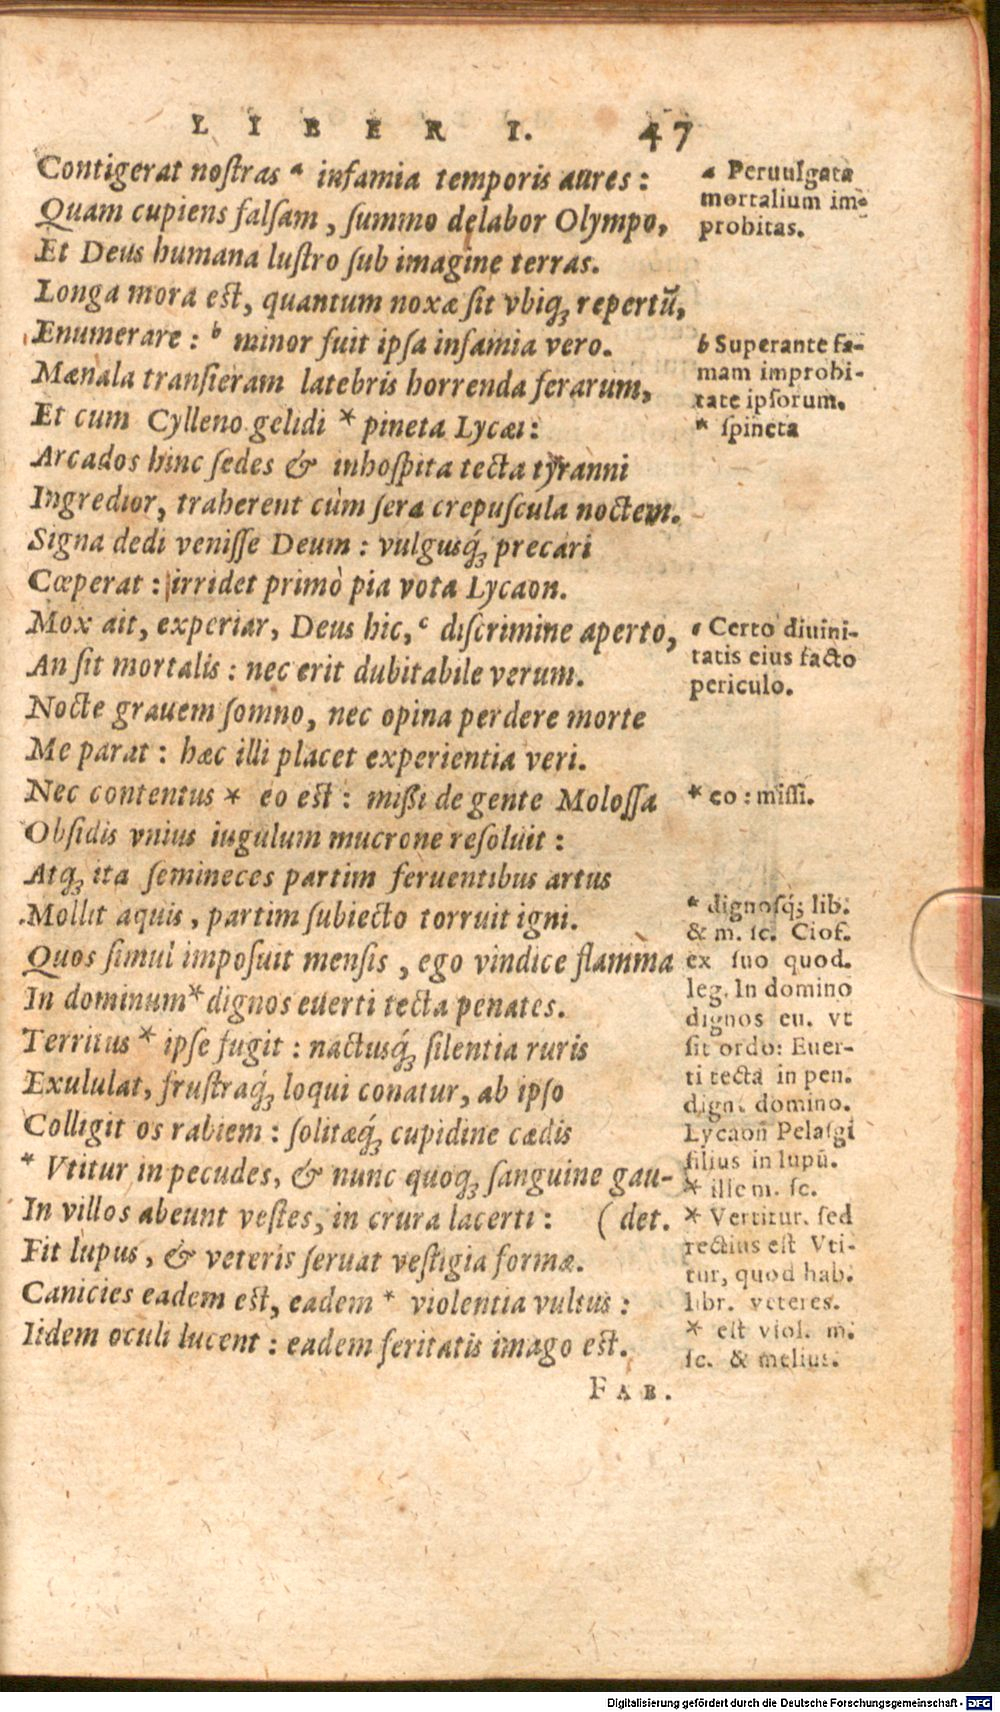 LIBER I. 47
Contigerat noſtras a infamia temporis aures:
Quam cupiens falſam, ſummo delabor Olympo,
Et Deus humana luſtro ſub imagine terras.
Longa mora eſt, quantum noxæ ſit vbiq; repertū,
Enumerare: b minor fuit ipſa infamia vero.
Mænala tranſieram latebris horrenda ferarum,
Et cum Cylleno gelidi * pineta Lycæi:
Arcados hinc ſedes & inhoſpita tecta tyranni
Ingredior, traherent cùm ſera crepuſcula noctem.
Signa dedi veniſſe Deum: vulgusq́; precari
Cœperat: irridet primò pia vota Lycaon.
Mox ait, experiar, Deus hic, c diſcrimine aperto,
An ſit mortalis: nec erit dubitabile verum.
Nocte grauem ſomno, nec opina perdere morte
Me parat: hæc illi placet experientia veri.
Nec contentus * eo eſt: miſſi de gente Moloſſa
Obſidis vnius iugulum mucrone reſoluit:
Atq; ita ſemineces partim feruentibus artus
Mollit aquis, partim ſubiecto torruit igni.
Quos ſimul impoſuit menſis, ego vindice flamma
In dominum * dignos euerti tecta penates.
Territus * ipſe fugit: nactusq́; ſilentia ruris
Exululat, fruſtraq́; loqui conatur, ab ipſo
Colligit os rabiem: ſolitæq́; cupidine cædis
* Vtitur in pecudes, & nunc quoq; ſanguine gau-
In villos abeunt veſtes, in crura lacerti: (det.
Fit lupus, & veteris ſeruat veſtigia formæ.
Canicies eadem eſt, eadem * violentia vultus:
Iidem oculi lucent: eadem feritatis imago eſt.
FAB.
a Peruulgata
mortalium im-
probitas.
b Superante fa-
mam improbi-
tate ipſorum.
* ſpineta
c Certo diuini-
tatis eius facto
periculo.
* eo: miſſi.
* dignoſq́; lib.
& m. ſc. Ciof.
ex ſuo quod.
leg. In domino
dignos eu. vt
ſit ordo: Euer-
ti tecta in pen.
dign. domino.
Lycaon Pelaſgi
filius in lupū.
* ille m. ſc.
* Vertitur. ſed
rectius eſt Vti-
tur, quod hab.
libr. veteres.
* eſt viol. m.
ſc. & melius.
Digitalisierung gefördert durch die Deutsche Forschungsgemeinschaft - DFG